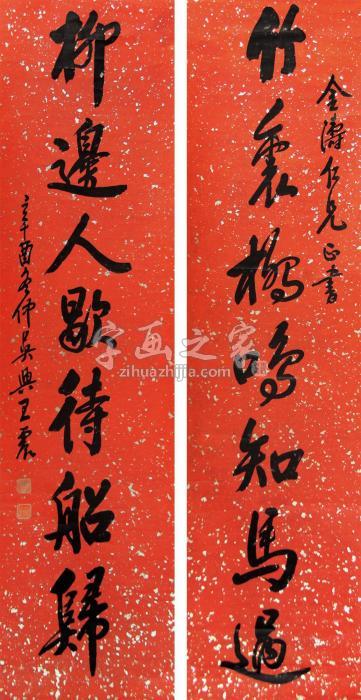 金濤仁兄正書
竹裏橋鳴知馬過
柳邊人歇待船歸
辛酉冬仲吳興王震
字画之家
www.zihuazhijia.com